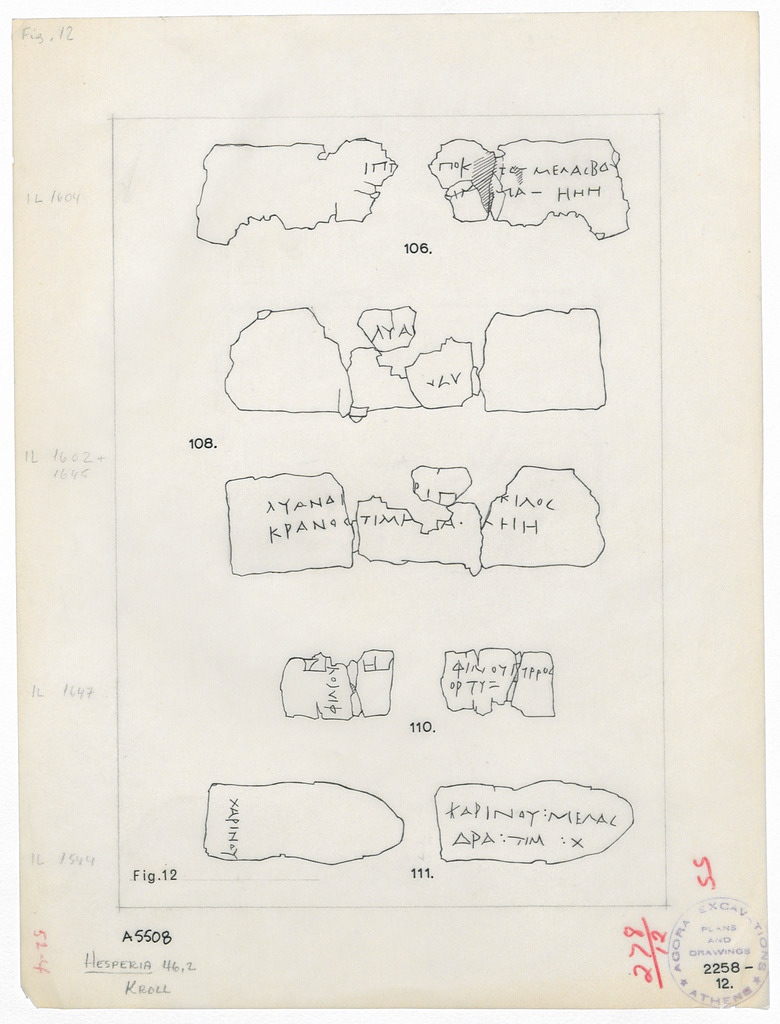 Fig. 12
IL 1604
ΙΠΠ
ΠΟΚ ΤΟΥ ΜΕΛΑΣΒΟ
ΜΑ— ΗΗΗ
106.
ΛΥΑ
108.
IL 1602+
1645
ΛΥΑΝΔΙ ΡΙΠ ΚΙΛΟΣ
ΚΡΑΝΟΣ ΤΙΜΗ Α· ΗΗ
IL 1647
ΦΙΛΙΝΟΥ ΠΥΡΡΟΣ
ΟΡ ΤΥ=
110.
IL 1544
ΧΑΡΙΝΟΥ
ΧΑΡΙΝΟΥ:ΜΕΛΑΣ
ΔΡΑ:ΤΙΜ :Χ
Fig.12
111.
55
52-4
278/12
A5508
HESPERIA 46,2
KROLL
AGORA EXCAVATIONS
PLANS
AND
DRAWINGS
2258-
12.
ATHENS